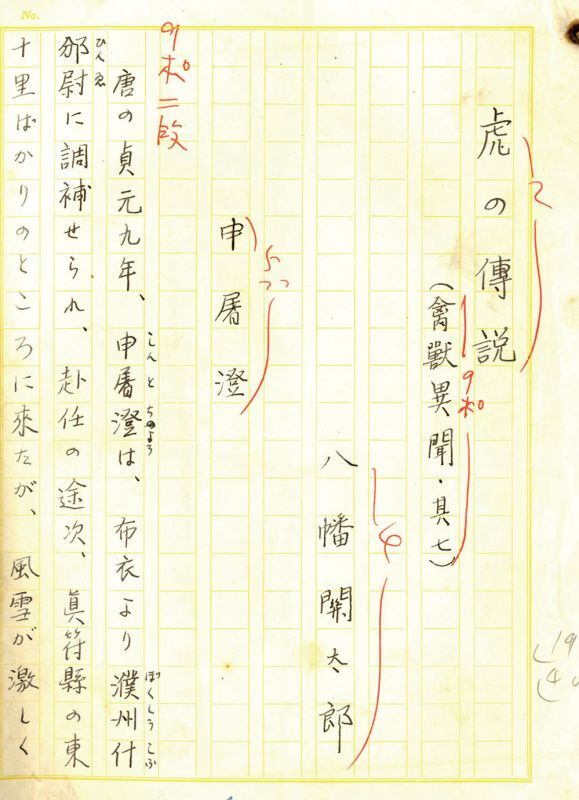 No.
虎の傳説
(禽獸異聞・其七)
9ポ
八幡関太郎
申屠澄
9ポ二段
唐の貞元九年、申屠澄は、布衣より濮州什
しんとちょう
ぼくしうじふ
邠尉に調補せられ、赴任の途次、眞符縣の東
ひんゐ
十里ばかりのところに來たが、風雪が激しく